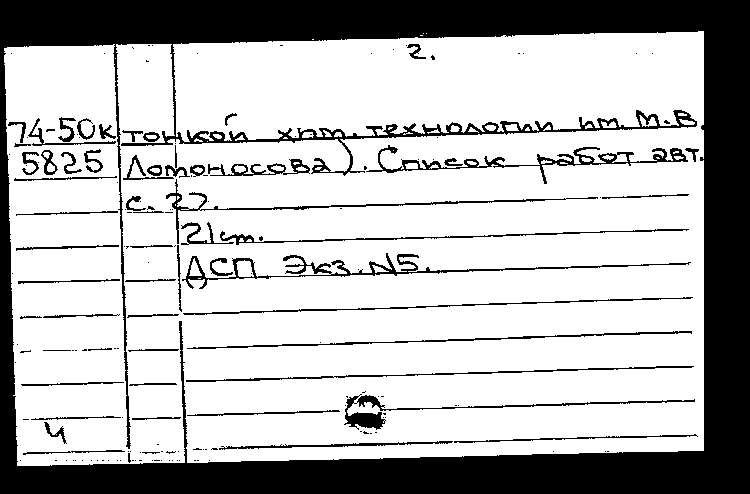 2.
74-50к тонкой хим. технологии им. М.В.
5825 Ломоносова). Список работ авт.
с. 27.
21 см.
ДСП Экз. N5.
Ч